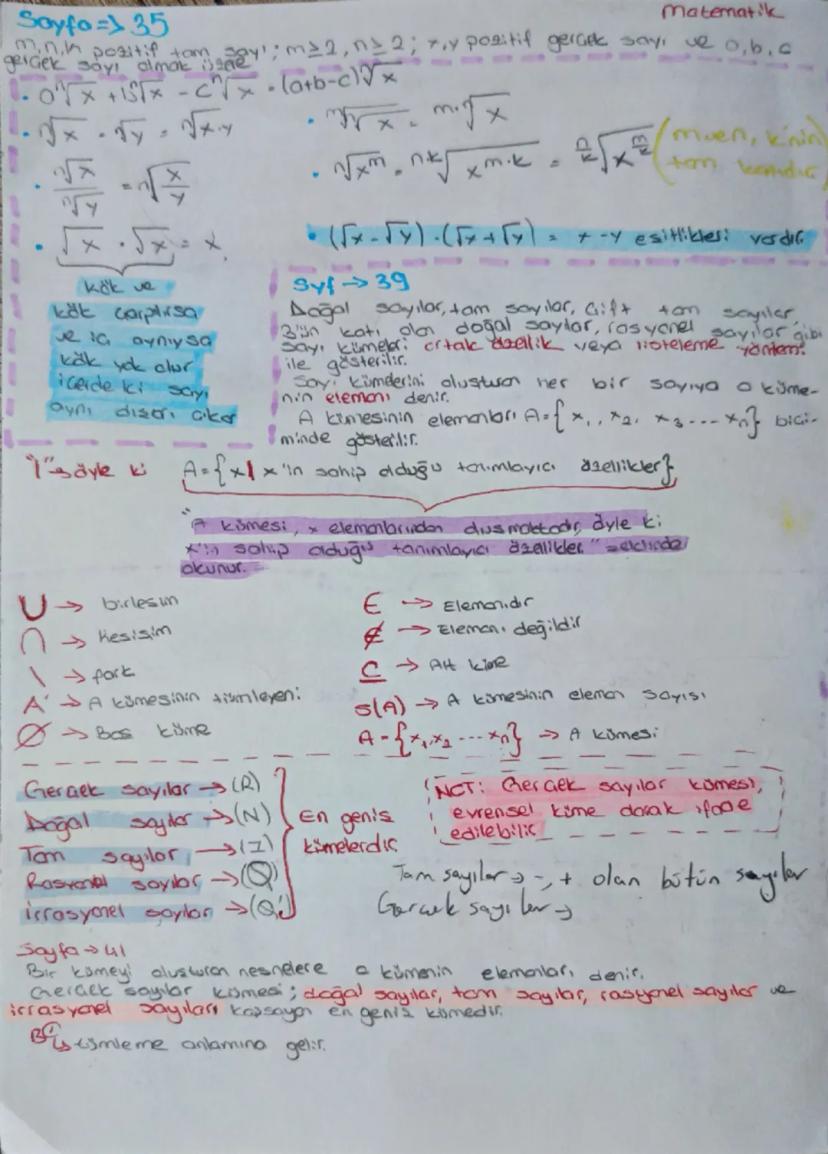 Sayfa => 35
Matematik
m,n,k pozitif tam sayı; m≥2, n≥2; x,y pozitif gerçek sayı ve a,b,c
gerçek sayı olmak üzere
• a ⁿ√x + b ⁿ√x - c ⁿ√x = (a+b-c) ⁿ√x
• ⁿ√x · ⁿ√y = ⁿ√x·y
• ᵐ√ⁿ√x = ᵐ·ⁿ√x
• ⁿ√x / ⁿ√y = ⁿ√(x/y)
• ⁿ√xᵐ = ⁿᵏ√x^m·k = n/k √x^m/k (m ve n, k'nin
tam katıdır)
• √x · √x = x
• (√x - √y) · (√x + √y) = x - y eşitlikleri vardır.
kök ve
kök çarpılırsa
ve içi aynıysa
kök yok olur
içerdeki sayı
aynı dışarı çıkar
Syf → 39
Doğal sayılar, tam sayılar, çift tam sayılar
3'ün katı olan doğal sayılar, rasyonel sayılar gibi
sayı kümeleri ortak özellik veya listeleme yöntemi
ile gösterilir.
Sayı kümelerini oluşturan her bir sayıya o küme-
nin elemanı denir.
A kümesinin elemanları A={x₁, x₂, x₃ ... xₙ} biçi-
minde gösterilir.
"|" → öyle ki A={x | x'in sahip olduğu tanımlayıcı özellikler}
"A kümesi, x elemanlarından oluşmaktadır, öyle ki
x'in sahip olduğu tanımlayıcı özellikler" şeklinde
okunur.
∪ → birleşim
∩ → Kesişim
\ → fark
A' → A kümesinin tümleyeni
∅ → Boş küme
∈ → Elemanıdır
∉ → Elemanı değildir
⊆ → Alt küme
s(A) → A kümesinin eleman sayısı
A = {x₁, x₂ ... xₙ} → A kümesi
Gerçek sayılar → (R)
Doğal sayılar → (N)
Tam sayılar → (Z)
Rasyonel sayılar → (Q)
irrasyonel sayılar → (Q')
En geniş
kümelerdir
NOT: Gerçek sayılar kümesi,
evrensel küme olarak ifade
edilebilir
Tam sayılar → -, + olan bütün sayılar
Gerçek sayılar →
Sayfa → 41
Bir kümeyi oluşturan nesnelere o kümenin elemanları denir.
Gerçek sayılar kümesi; doğal sayılar, tam sayılar, rasyonel sayılar ve
irrasyonel sayıları kapsayan en geniş kümedir.
tümleme anlamına gelir.